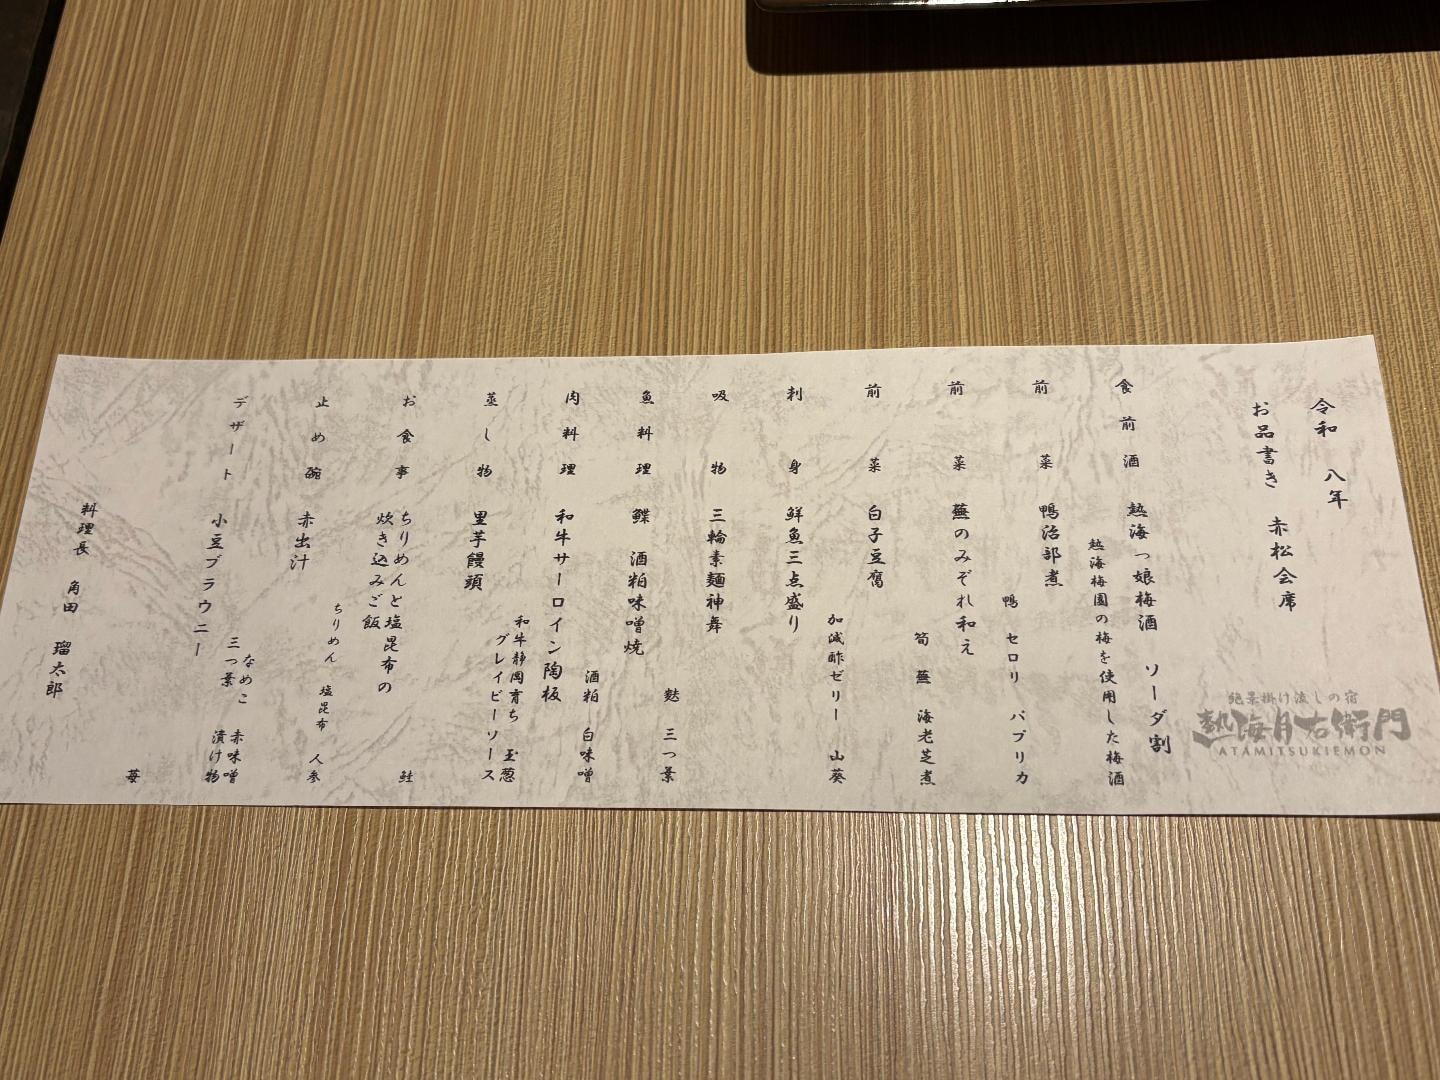 令和 八年
お品書き 赤松会席
絶景掛け流しの宿
熱海月右衛門
ATAMITSUKIEMON
食前酒 熱海っ娘梅酒 ソーダ割
熱海梅園の梅を使用した梅酒
前菜 鴨治部煮
鴨 セロリ パプリカ
前菜 蕪のみぞれ和え
筍 蕪 海老芝煮
前菜 白子豆腐
加減酢ゼリー 山葵
刺身 鮮魚三点盛り
吸物 三輪素麺神舞
麩 三つ葉
魚料理 鰈 酒粕味噌焼
酒粕 白味噌
肉料理 和牛サーロイン陶板
和牛静岡育ち 玉葱
グレイビーソース
蒸し物 里芋饅頭
鮭
お食事 ちりめんと塩昆布の
炊き込みご飯
ちりめん 塩昆布 人参
止め碗 赤出汁
なめこ 赤味噌
三つ葉 漬け物
デザート 小豆ブラウニー
苺
料理長 角田 瑠太郎